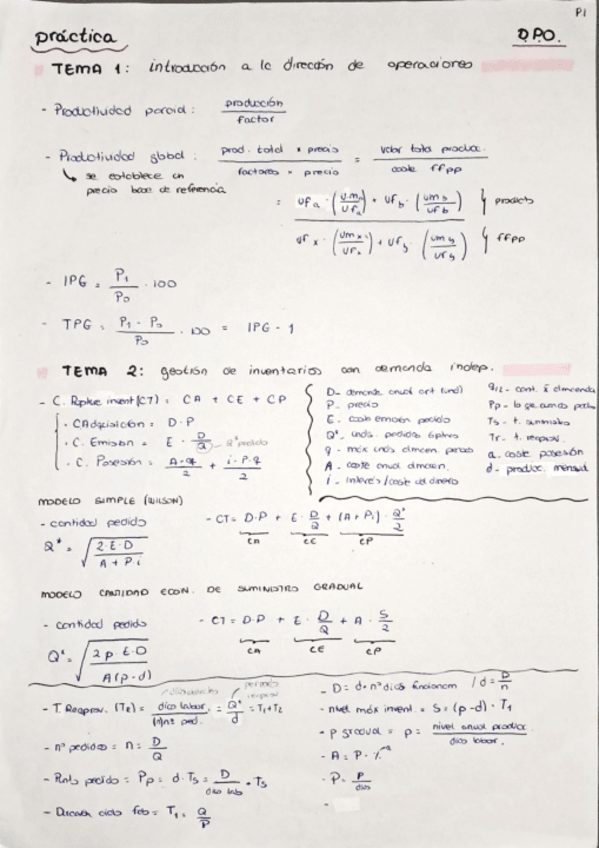 P.1
práctica
D.P.O.
TEMA 1: introducción a la dirección de operaciones
- Productividad parcial: producción / factor
- Productividad global: prod. total × precio / factores × precio = valor total produce. / coste ffpp
↳ se establece un
precio base de referencia
= uf a · (um a / uf a) + uf b · (um b / uf b) } products
uf x · (um x / uf x) + uf y · (um y / uf y) } ffpp
- IPG = P1 / P0 · 100
- TPG = P1 - P0 / P0 · 100 = IPG - 1
TEMA 2: gestión de inventarios con demanda indep.
- C. invent (CT) = CA + CE + CP
· C Adquisición = D · P
· C. Emisión = E · D / Q → Qº pedido
· C. Posesión = A · q / 2 + i · P · q / 2
D - demanda anual art (und)
P - precio
E - coste emisión pedido
Q* - unds. pedidos óptimos
q - máx unds almacen periodo
A - coste anual almacen.
i - interés / coste del dinero
q/2 - cant. x̄ almacenda
Ts - t. suministro
Tr - t. reaprov.
a - coste posesión
d - produc. mensual
MODELO SIMPLE (WILSON)
- cantidad pedido
- CT = D · P + E · D / Q + (A + Pi) · Q* / 2
CA CE CP
Q* = √ 2 · E · D / A + P · i
MODELO CANTIDAD ECON. DE SUMINISTRO GRADUAL
- cantidad pedido
- CT = D · P + E · D / Q + A · S / 2
CA CE CP
Q* = √ 2 p · E · D / A (p - d)
- T. Reaprov. (TR) = dias labor. / (n) nº ped. = Q* / d = T1 + T2
- nº pedidos = n = D / Q
- Punto pedido = Pp = d · Ts = D / dias lab · Ts
- ciclo fab = T1 = Q / P
- D = d · nº dias funcionam / d = D / n
- nivel máx invent. = S = (p - d) · T1
- p gradual = p = nivel anual produc. / dias labor.
- A = P · %
- P = P / dias
-